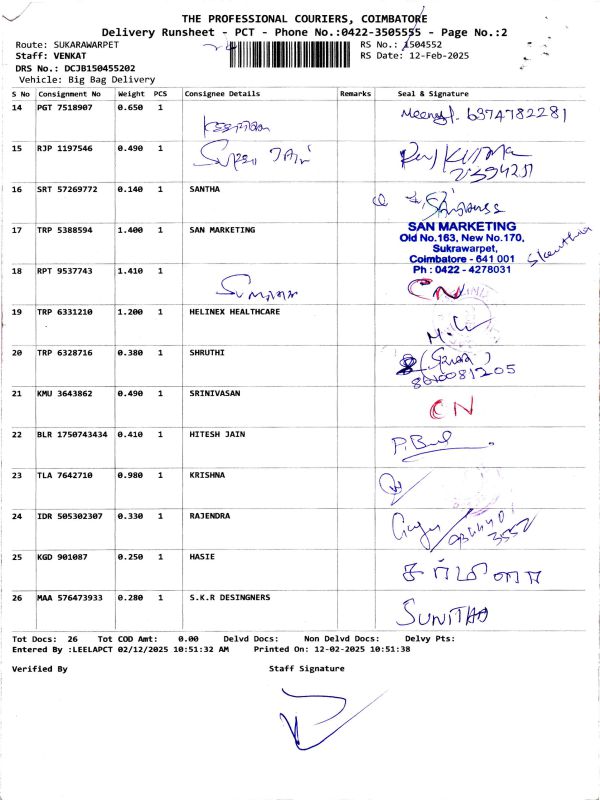 THE PROFESSIONAL COURIERS, COIMBATORE
Delivery Runsheet - PCT - Phone No.:0422-3505555 - Page No.:2
Route: SUKARAWARPET
RS No.: 1504552
Staff: VENKAT
RS Date: 12-Feb-2025
DRS No.: DCJB150455202
Vehicle: Big Bag Delivery
S No Consignment No Weight PCS Consignee Details Remarks Seal & Signature
14 PGT 7518907 0.650 1 6374782281
15 RJP 1197546 0.490 1
16 SRT 57269772 0.140 1 SANTHA
17 TRP 5388594 1.400 1 SAN MARKETING
SAN MARKETING
Old No.163, New No.170,
Sukrawarpet,
Coimbatore - 641 001
Ph : 0422 - 4278031
18 RPT 9537743 1.410 1 CN
19 TRP 6331210 1.200 1 HELINEX HEALTHCARE
20 TRP 6328716 0.380 1 SHRUTHI
8610081205
21 KMU 3643862 0.490 1 SRINIVASAN CN
22 BLR 1750743434 0.410 1 HITESH JAIN
23 TLA 7642710 0.980 1 KRISHNA
24 IDR 505302307 0.330 1 RAJENDRA
25 KGD 901087 0.250 1 HASIE
26 MAA 576473933 0.280 1 S.K.R DESINGNERS SUNITHA
Tot Docs: 26 Tot COD Amt: 0.00 Delvd Docs: Non Delvd Docs: Delvy Pts:
Entered By :LEELAPCT 02/12/2025 10:51:32 AM Printed On: 12-02-2025 10:51:38
Verified By Staff Signature